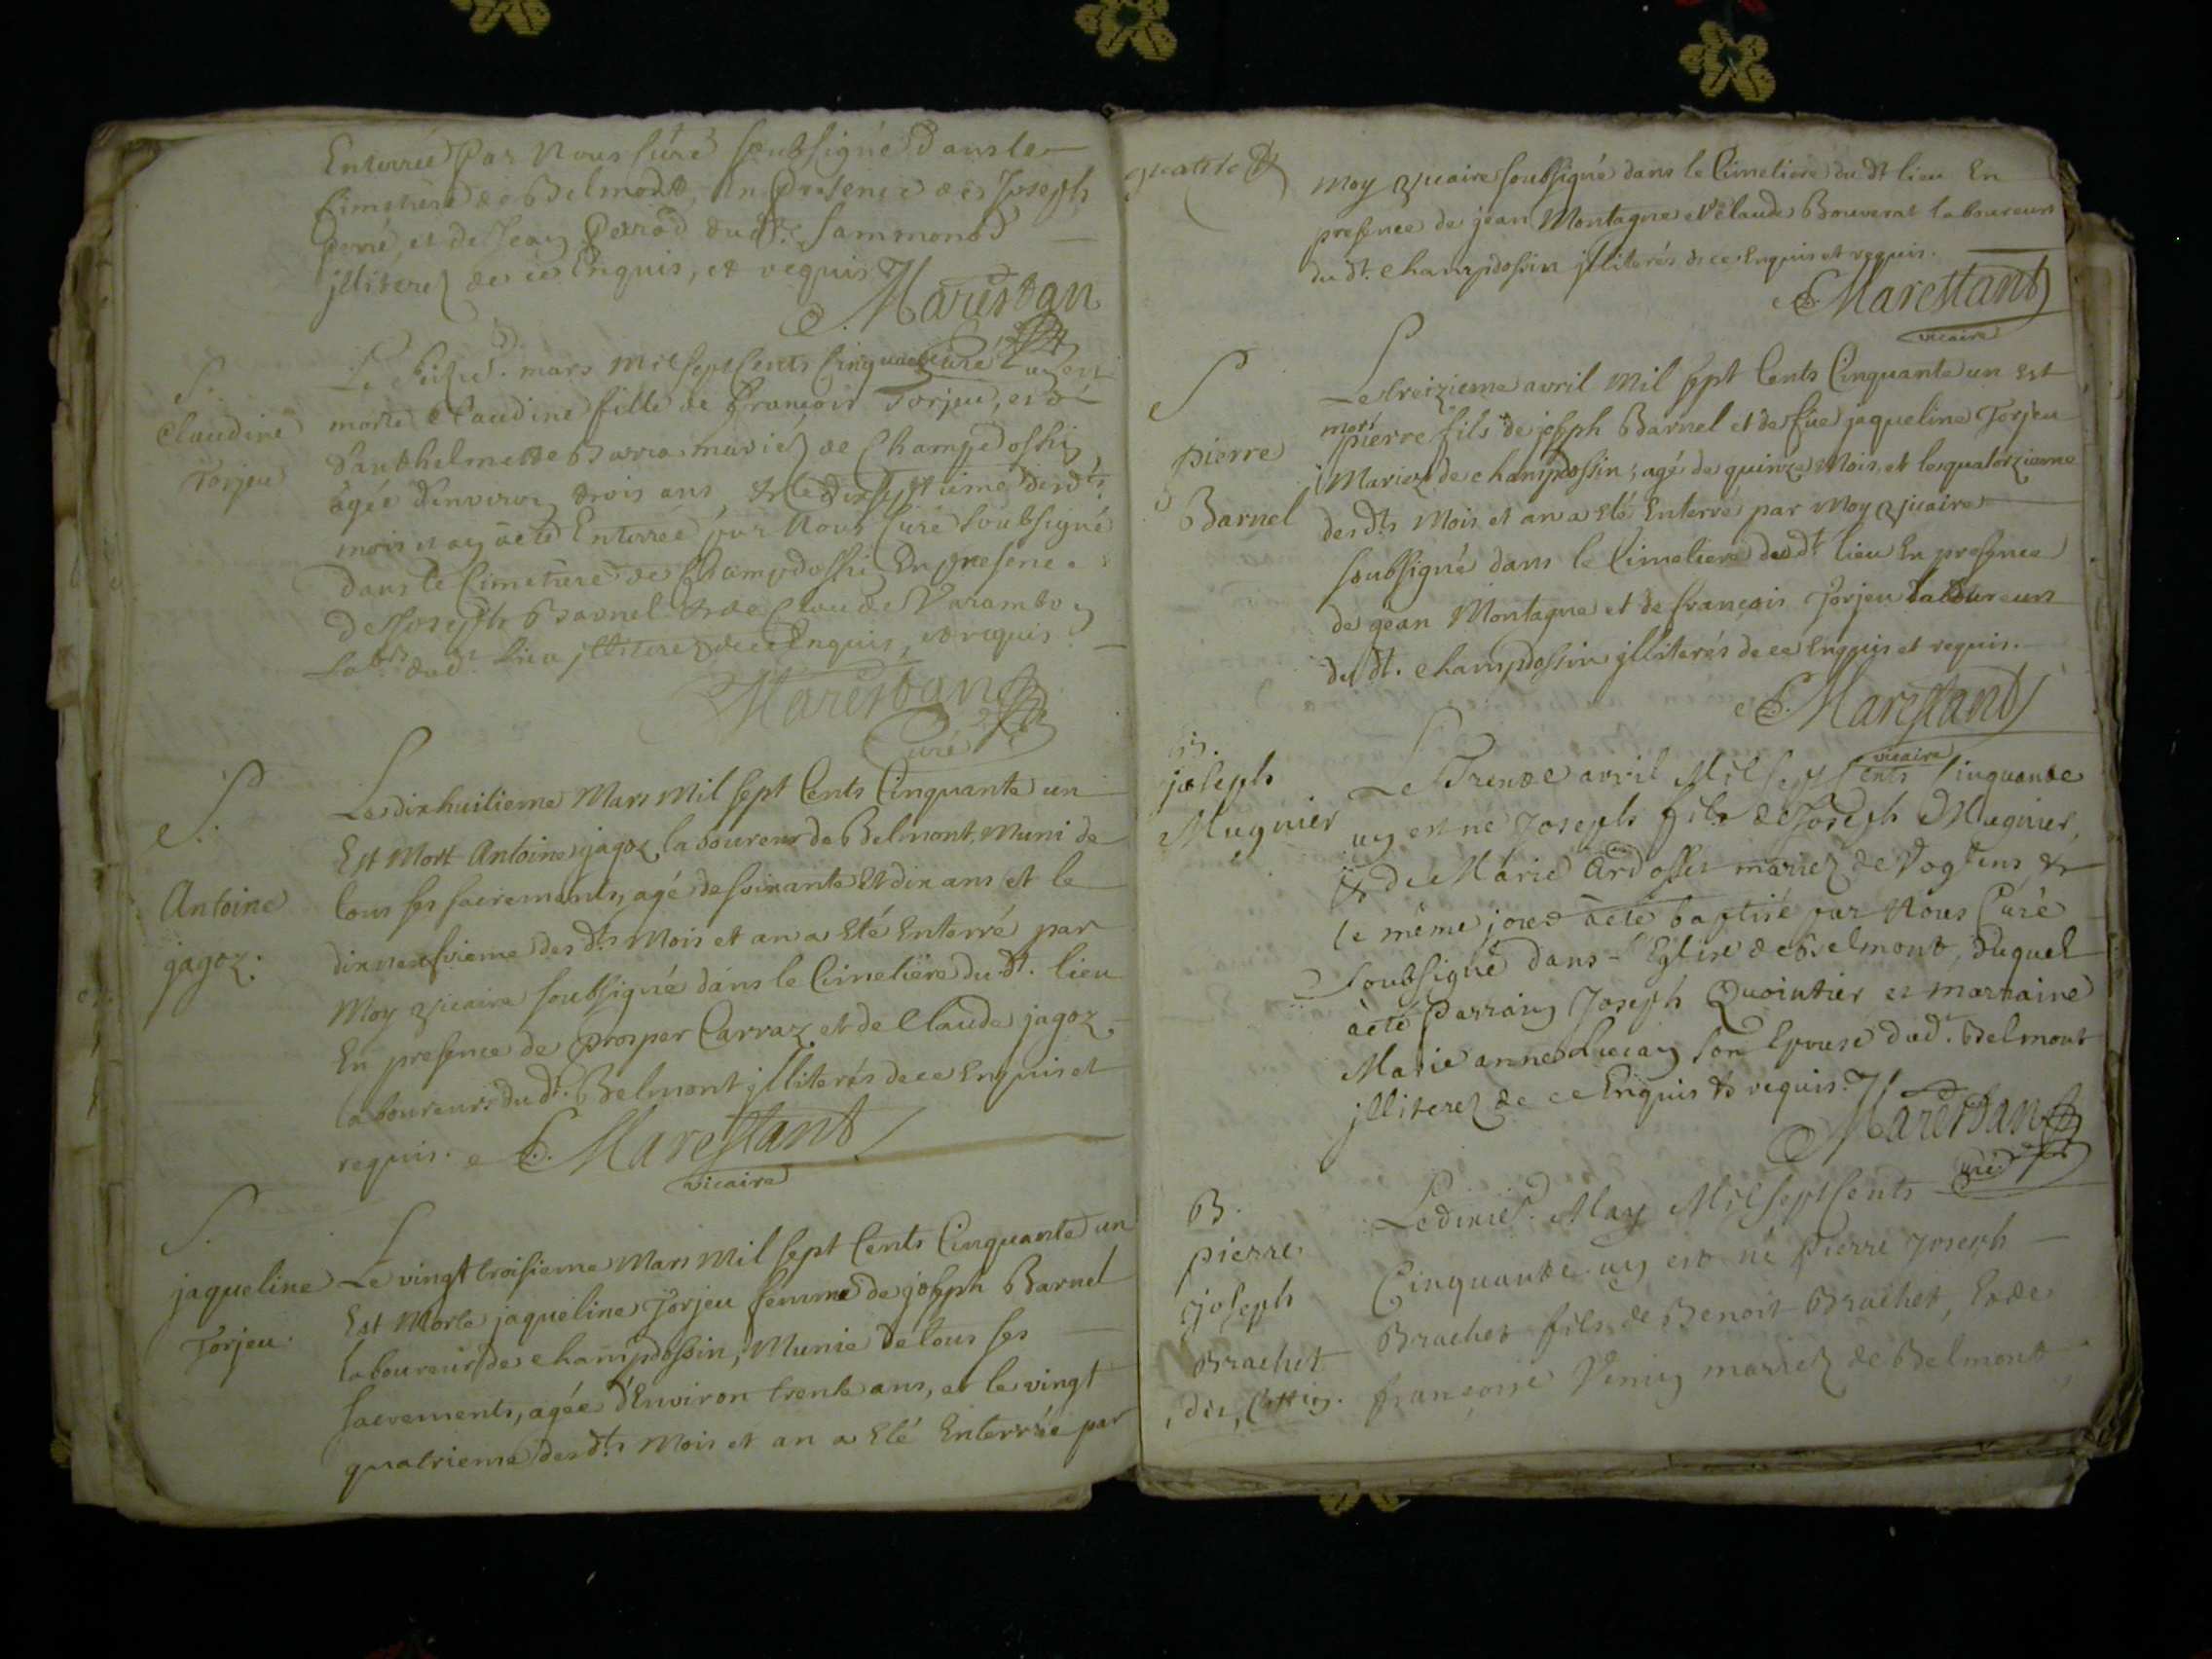 Enterrée Par Nous Curé soubsigné Dans le
Cimetiere de Belmont, En Presence de Joseph
Perré, et de Jean Perrod dudt. Sammonod
jlliterez de ce Enquis, et requis
Marestan
Curé
S.
Claudine
Torjeu
Le seize. mars Mil sept Cents Cinquante un est
morte Claudine fille de François Torjeu, et d'
Anthelmette Barra mariéz de Champdossin,
agée d'environ trois ans, & le dix septieme desdts.
mois & an a eté Enterrée par Nous Curé soubsigné
Dans le Cimetiere de Champdossin En presence
De Joseph Barnel & de Claude Varambon
Labrs. dudt. Lieu jlliterez de ce Enquis, et requis.
Marestan
Curé
S.
Antoine
jagoz.
Le dix huitieme Mars Mil sept Cents Cinquante un
Est Mort Antoine jagoz laboureur de Belmont, Muni de
tous ses sacrements, agé de soixante Et dix ans et le
dix neufvieme desdts Mois et an a Eté Enterré par
Moy vicaire soubsigné dans le Cimetiëre dudt. lieu
En presence de prosper Carraz et de Claude jagoz
laboureurs dudt. Belmont jlliterés de ce Enquis et
requis. Marestant
vicaire
S.
jaqueline
Torjeu.
Le vingt troisieme Mars Mil sept Cents Cinquante un
Est Morte jaqueline Torjeu femme de joseph Barnel
laboureur de champdossin, Munie de tous ses
sacrements, agée d'Environ trente ans, et le vingt
quatrieme desdts Mois et an a Eté Enterrée par
quatre
Moy vicaire soubsigné dans le Cimetiere dudt lieu En
presence de jean Montagne et Claude Bouverat laboureurs
dudt. champdossin jlliterés de ce Enquis et requis.
Marestant
vicaire
S
pierre
Barnel
Le treizieme avril Mil sept Cents Cinquante un est
mort
pierre fils de joseph Barnel et de füe jaqueline Torjeu
Mariez de champdossin, agé de quinze Mois, et le quatorzieme
desdts Mois et an a Eté Enterré par Moy vicaire
soubsigné dans le Cimetiere dudt lieu En presence
de gêan Montagne et de françois Torjeu laboureurs
dudt. champdossin jlliterés de ce Enquis et requis.
Marestant
vicaire
B.
joseph
Mugnier
Le Trente avril Mil sept Cents Cinquante
un est né Joseph fils de Joseph Mugnier,
& de Marie Ardosset mariez de Voglens &
le même jour a eté baptisé par Nous Curé
Soubsigné dans l'Eglise de Belmont, Duquel
a eté Parrain Joseph Quointier et marraine
Marie anne Luçan son Epouse dudt. Belmont
jlliterez de ce Enquis & requis.
Marestan
Curé
B.
pierre
joseph
Brachet
Le dixie. May Mil sept Cents
Cinquante un est né Pierre Joseph
Brachet fils de Benoit Brachet, & de
françoise Venin mariez de Belmont
dit, Cottin.